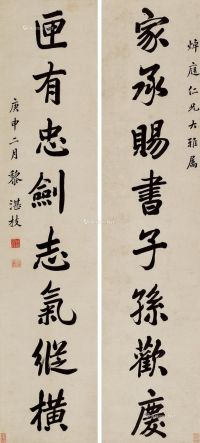 焯庭仁兄大雅属
家承賜書子孫歡慶
匣有忠劍志氣縱橫
庚申二月黎湛枝